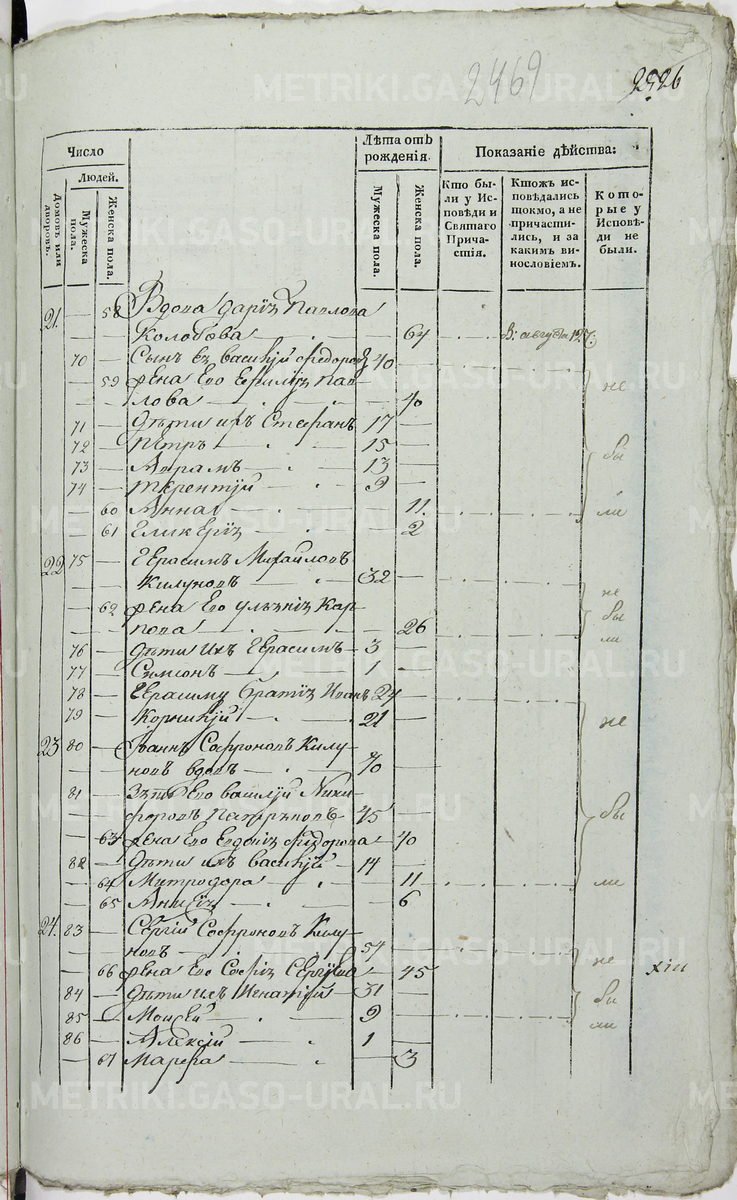 2469
2526
Число
Лѣта отъ рожденія.
Показаніе дѣйства:
Людей.
Домовъ или дворовъ.
Мужеска пола.
Женска пола.
Мужеска пола.
Женска пола.
Кто были у Исповѣди и Святаго Причастія.
Ктожъ исповѣдались токмо, а не причастились, и за какимъ винословіемъ.
Которые у Исповѣди не были.
21. 58 Вдова Дарія Павлова
Колобова 64
70 Сынъ ея Василий Федоровъ 40
59 жена его
лова 40 не
71 дѣти ихъ Стефанъ 17
72 Петръ 15 бы
73 Абрамъ 13
74 Терентій 9
60 Анна 11. ли
61 Гликерія 2
22 75 Герасимъ Михайловъ
Килуновъ 32 не
62 жена его Улянія Кар
пова 26 бы
76 дѣти ихъ Герасимъ 3 ли
77 Симеонъ 1
78 Герасиму братья Иванъ 24
79 Корнилій 21 не
23 80 Іоаннъ Софроновъ Килу
новъ вдовъ 70
81 Зять его Василий Ники
форовъ 45 бы
63 жена его Евдокія Федорова 40
82 дѣти ихъ Василий 14
64 Митродора 11 ли
65 Анисія 6
24. 83 Сергій Софроновъ Килу
новъ 54 не
66 жена его Софія Сергіева 45
84 дѣти ихъ Игнатій 31 бы
85 Моисей 9 ли
86 Алексій 1
67 Марфа 3
METRIKI.GASO-URAL.RU